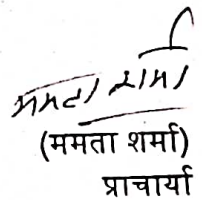 ममता शर्मा
(ममता शर्मा)
प्राचार्या